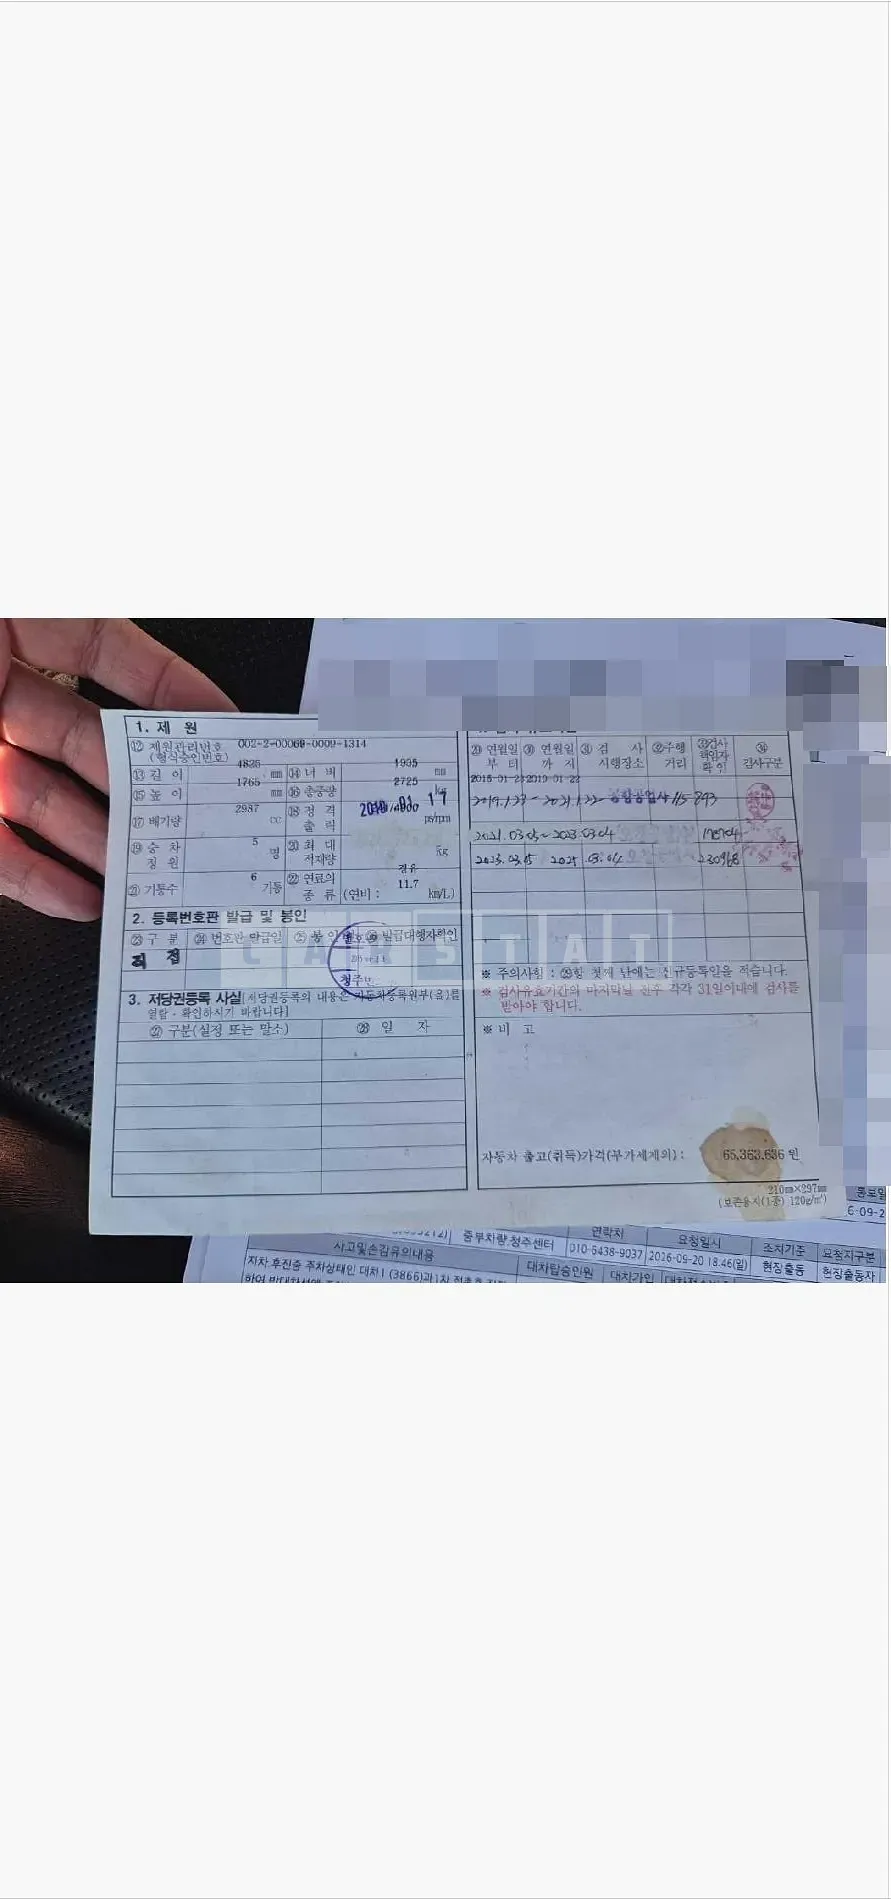 1. 제 원
⑫ 제원관리번호 002-2-00069-0009-1314
(형식승인번호)
⑬ 길 이 4825 mm ⑭ 너 비 1935 mm
⑮ 높 이 1765 mm ⑯ 총중량 2725 kg
⑰ 배기량 2987 cc ⑱ 정 격 출 력 ps/rpm
⑲ 승 차 정 원 5 명 ⑳ 최 대 적재량 kg
㉑ 기통수 6 기통 ㉒ 연료의 종 류 경유 (연비 : 11.7 km/L)
2. 등록번호판 발급 및 봉인
㉓ 구 분 ㉔ 번호판 발급일 ㉕ 봉인 ㉖ 발급대행자확인
직 접
청주
3. 저당권등록 사실[저당권등록의 내용은 자동차등록원부(을)를
열람ㆍ확인하시기 바랍니다]
㉗ 구분(설정 또는 말소) ㉘ 일 자
㉙ 연월일 부 터 ㉚ 연월일 까 지 ㉛ 검 사 시행장소 ㉜ 주행 거리 ㉝ 검사 책임자 확 인 ㉞ 검사구분
2015-01-23 2019-01-22
2019.1.23 ~ 2021.1.22 종합공업사 115893
2021.03.05 ~ 2023.03.04
2023.03.05 2025.03.04 230968
CARSTAT
※ 주의사항 : ㉙항 첫째 란에는 신규등록일을 적습니다.
※ 검사유효기간의 마지막날 전후 각각 31일이내에 검사를
받아야 합니다.
※ 비 고
자동차 출고(취득)가격(부가세제외) : 65,363,636 원
210㎜×297㎜
(보존용지(1종) 120g/㎡)
중부차량.청주센터 연락처 010-5438-9037 요청일시 2026-09-20 18:46(일) 조치기준 현장출동 요청지구분 현장출동자
사고및손감유의내용 대차탑승인원 대차가입
자차 후진중 주차상태인 대차1 (3866)과 1차